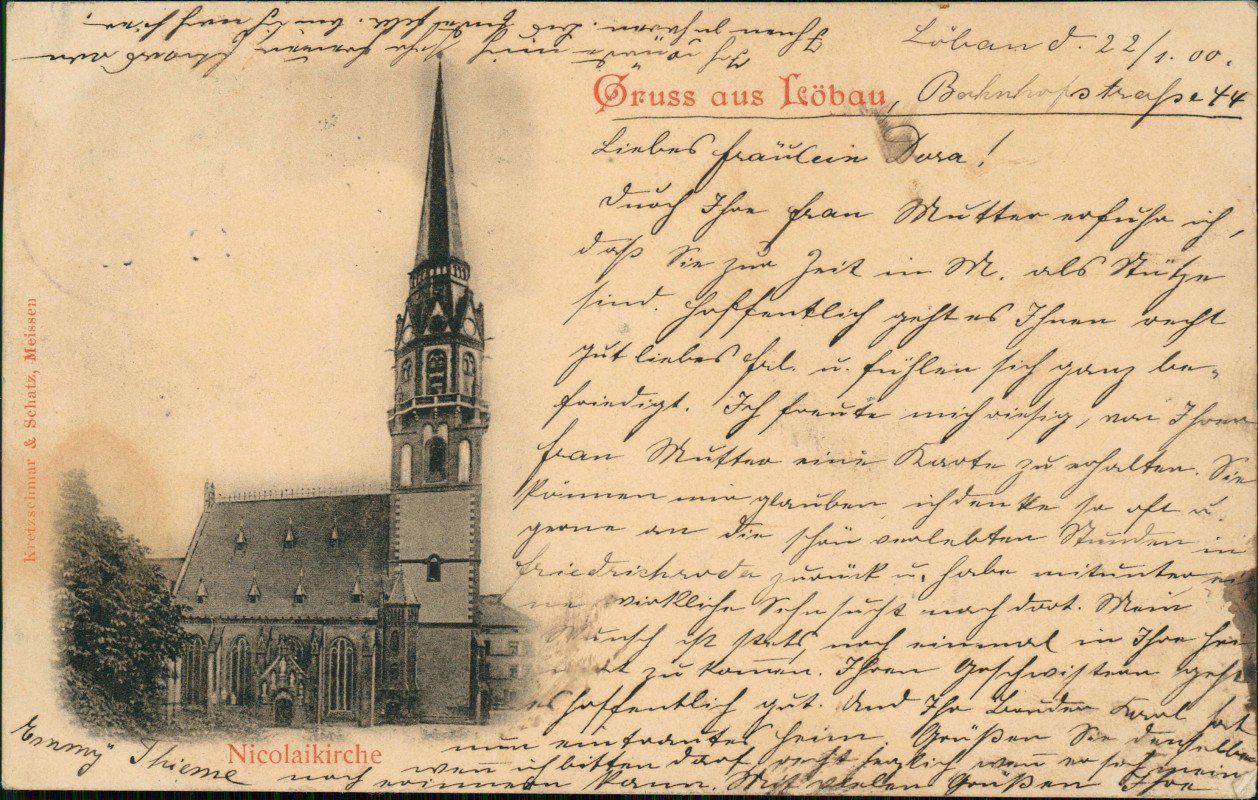 Löbau d. 22/1. 00.
Gruss aus Löbau, Bahnhofstraße 44
Liebes Fräulein Dora!
Durch Ihre Frau Mutter erfuhr ich,
daß Sie zur Zeit in M. als Stütze
sind. Hoffentlich geht es Ihnen recht
gut liebes Frl. u. fühlen sich ganz be-
friedigt. Ich freute mich riesig, von Ihrer
Frau Mutter eine Karte zu erhalten. Sie
können mir glauben, ich denke so oft u.
gerne an die schön verlebten Stunden in
Friedrichroda zurück u. habe mitunter ei
ne wirkliche Sehnsucht nach dort. Mein
Wunsch ist stets, noch einmal in Ihre Hei
mat zu kommen. Ihren Geschwistern geht
es hoffentlich gut. Und Ihr Bruder Karl hat
nun ein trautes Heim. Grüßen Sie denselben
wenn ich bitten darf, recht herzlich, wenn er sich mein
noch erinnern kann. Mit vielen Grüßen Ihre
Emmy Thieme
Ihnen zu hören. bin ich noch hier
Nicolaikirche
Kretzschmar & Schatz, Meissen